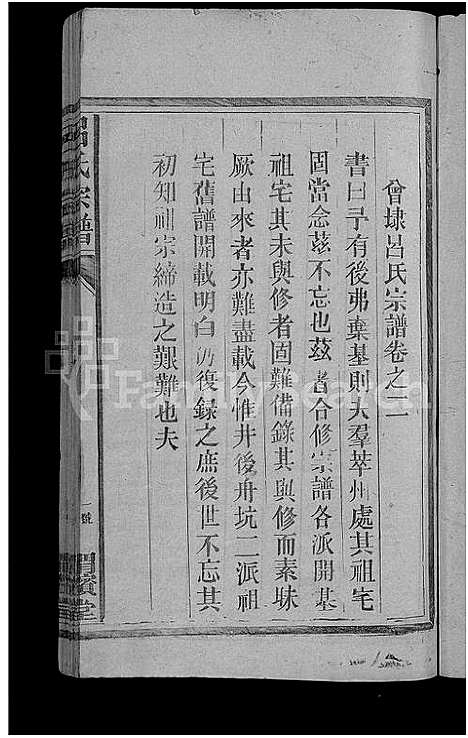 會埭呂氏宗譜卷之二
書曰予有後弗棄基則夫羣萃州處其祖宅
固當念茲不忘也茲者合修宗譜各派開基
祖宅其未與修者固難備錄其與修而素昧
厥由來者亦難盡載今惟井後舟坑二派祖
宅舊譜開載明白仍復録之庶後世不忘其
初知祖宗締造之艱難也夫
呂氏宗譜
一號
渭濱堂
FamilySearch